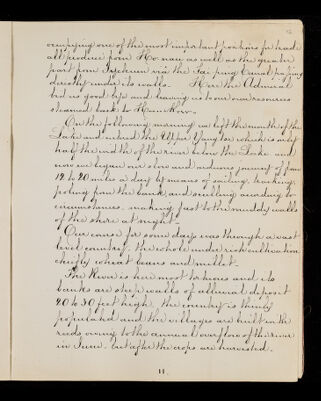 occupying one of the most important positions for trade
all produce from Ho-nan as well as the greater
part from Szechuen via the Tai ping Canal passing
directly under its walls. Here the Admiral
bid us good bye and leaving us to our own resources
steamed back to Hankow.
On the following morning we left the mouth of the
Lake and entered the Upper Yangtse which is only
half the width of the river below the Lake and
now we began our slow and tedious journey of from
12 to 20 miles a day by means of sailing, tracking,
poling from the bank and sculling according to
circumstances, making fast to the muddy walls
of the shore at night.
Our course for some days was through a vast
level country, the whole under rich cultivation
chiefly wheat beans and millet.
The River is here most tortuous and its
banks are steep walls of alluvial deposit
20 to 30 feet high. The country is thinly
populated and the villages are built in the
reeds owing to the annual overflow of the river
in June, but after the crops are harvested.
11